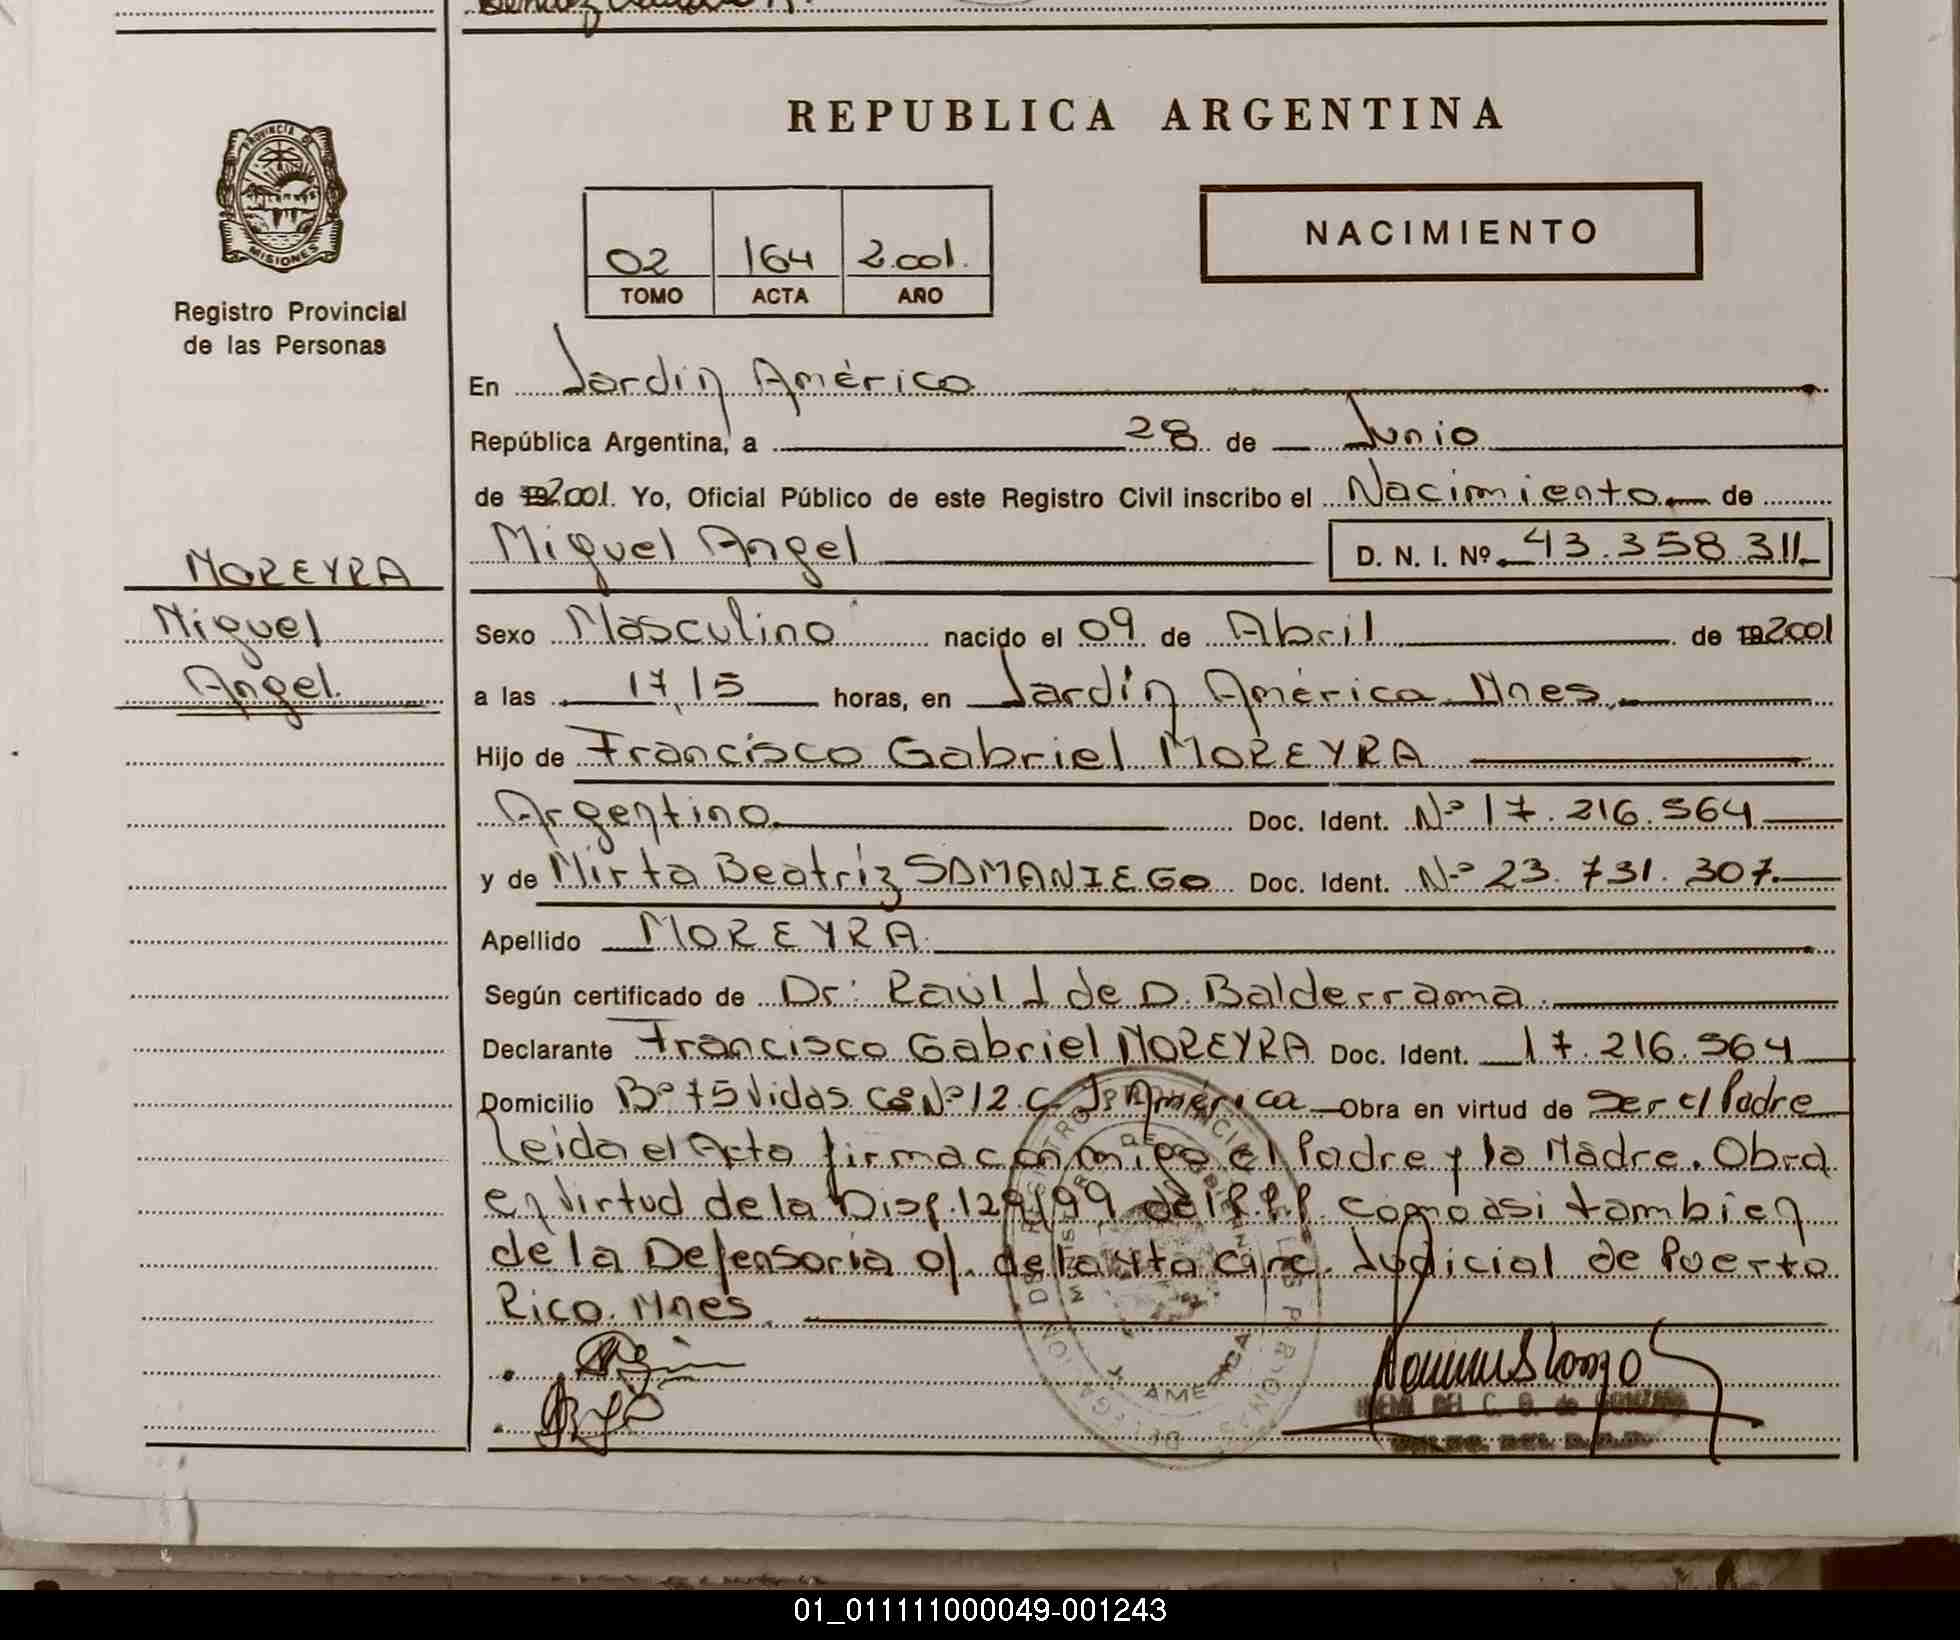 REPUBLICA ARGENTINA
PROVINCIA DE
MISIONES
Registro Provincial
de las Personas
NACIMIENTO
02 164 2.001.
TOMO ACTA AÑO
En Jardin América
República Argentina, a 28 de Junio
de 2.001. Yo, Oficial Público de este Registro Civil inscribo el Nacimiento de
Miguel Angel D. N. I. Nº 43.358.311
MOREYRA
Miguel
Angel.
Sexo Masculino nacido el 09 de Abril de 2001
a las 17,15 horas, en Jardín América Mnes.
Hijo de Francisco Gabriel MOREYRA
Argentino Doc. Ident. Nº 17.216.564
y de Mirta Beatríz SAMANIEGO Doc. Ident. Nº 23.731.307.
Apellido MOREYRA
Según certificado de Dr: Raúl J de D. Balderrama.
Declarante Francisco Gabriel MOREYRA Doc. Ident. 17.216.564
Domicilio Bº 75 Vidas Cs Nº 12 C. J. América Obra en virtud de Ser el Padre
leida el Acta firma conmigo el Padre y la Madre. Obra
en Virtud de la Disp. 129/99 del R.P.P. como asi tambien
de la Defensoria Of. de la 4ta Circ. Judicial de Puerto
Rico. Mnes.
AMERICA
01_011111000049-001243